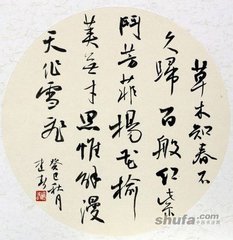 草木知春不
久歸百般红紫
鬥芳菲楊花榆
荚無才思惟解漫
天作雪飛
癸巳秋月
shufa.com